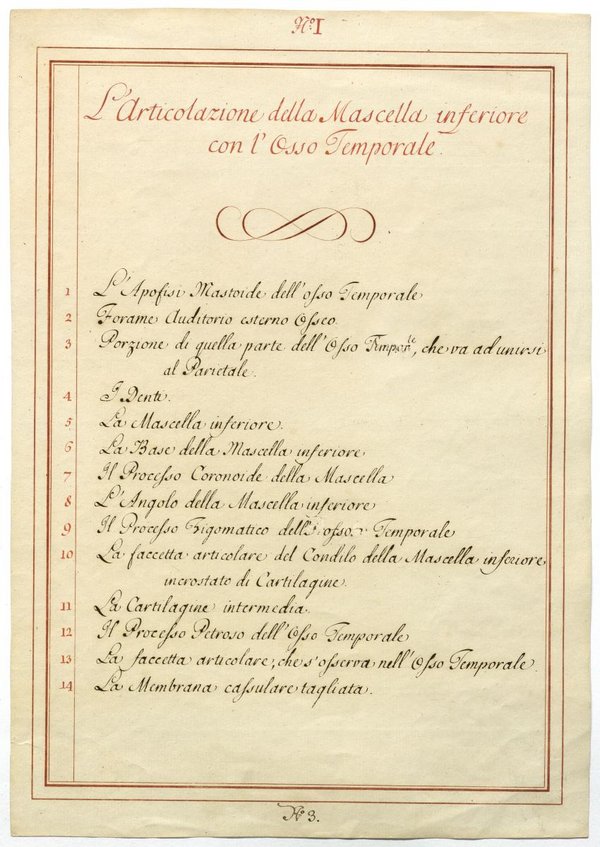 Nº I
L'Articolazione della Mascella inferiore
con l'Osso Temporale.
1 L'Apofisi Mastoide dell'osso Temporale
2 Forame Auditorio esterno Osseo.
3 Porzione di quella parte dell'Osso Tempor.le, che va ad unirsi
al Parietale.
4 I Denti.
5 La Mascella inferiore.
6 La Base della Mascella inferiore
7 Il Processo Coronoide della Mascella
8 L'Angolo della Mascella inferiore
9 Il Processo Zigomatico dell'osso Temporale
10 La faccetta articolare del Condilo della Mascella inferiore
incrostato di Cartilagine.
11 La Cartilagine intermedia.
12 Il Processo Petroso dell'Osso Temporale
13 La faccetta articolare, che s'osserva nell'Osso Temporale.
14 La Membrana cassulare tagliata.
Nº 3.